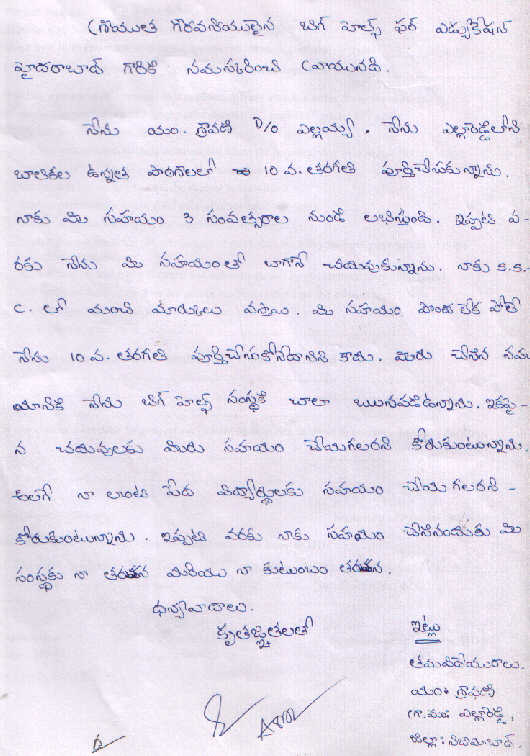 శ్రీయుత గౌరవనీయులైన బిగ్ హెల్ప్ ఫర్ ఎడ్యుకేషన్
హైదరాబాద్ గారికి నమస్కరించి వ్రాయునది.
నేను యం. శ్రావణి D/o ఎల్లయ్య. నేను ఎల్లారెడ్డిలోని
బాలికల ఉన్నత పాఠశాలలో 10 వ. తరగతి పూర్తిచేసుకున్నాను.
నాకు మీ సహాయం 3 సంవత్సరాల నుండి లభిస్తుంది. ఇప్పటి వ-
రకు నేను మీ సహాయంతో బాగానే చదువుకున్నాను. నాకు S.S.
C. లో మంచి మార్కులు వస్తాయి. మీ సహాయం పొంద లేక పోతే
నేను 10 వ. తరగతి పూర్తిచేసుకొనేదానిని కాదు. మీరు చేసిన సహా
యానికి నేను బిగ్ హెల్ప్ సంస్థకి చాలా ఋణపడిఉన్నాను. ఇకపై-
న చదువులకు మీరు సహాయం చేయగలరని కోరుకుంటున్నాను.
అలాగే నా లాంటి పేద విద్యార్థులకు సహాయం చేయగలరని -
కోరుకుంటున్నాను. ఇప్పటి వరకు నాకు సహాయం చేసినందుకు మీ
సంస్థకు నా తరఫున మరియు నా కుటుంబం తరఫున.
ధన్యవాదాలు.
కృతజ్ఞతలతో
ఇట్లు
తమవిధేయురాలు.
యం. శ్రావణి
గ్రా.మం: ఎల్లారెడ్డి,
జిల్లా: నిజామబాద్